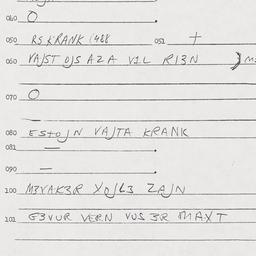 040 O
050 RS KRANK (488 051 +
060 VAJST DJS AZA V1L R13N
070 O
080 ESTOJN VAJTA KRANK
081 —
090 —
100 M3VAK3R XOJL3 ZAJN
101 G3VUR VERN VUS 3R MAXT